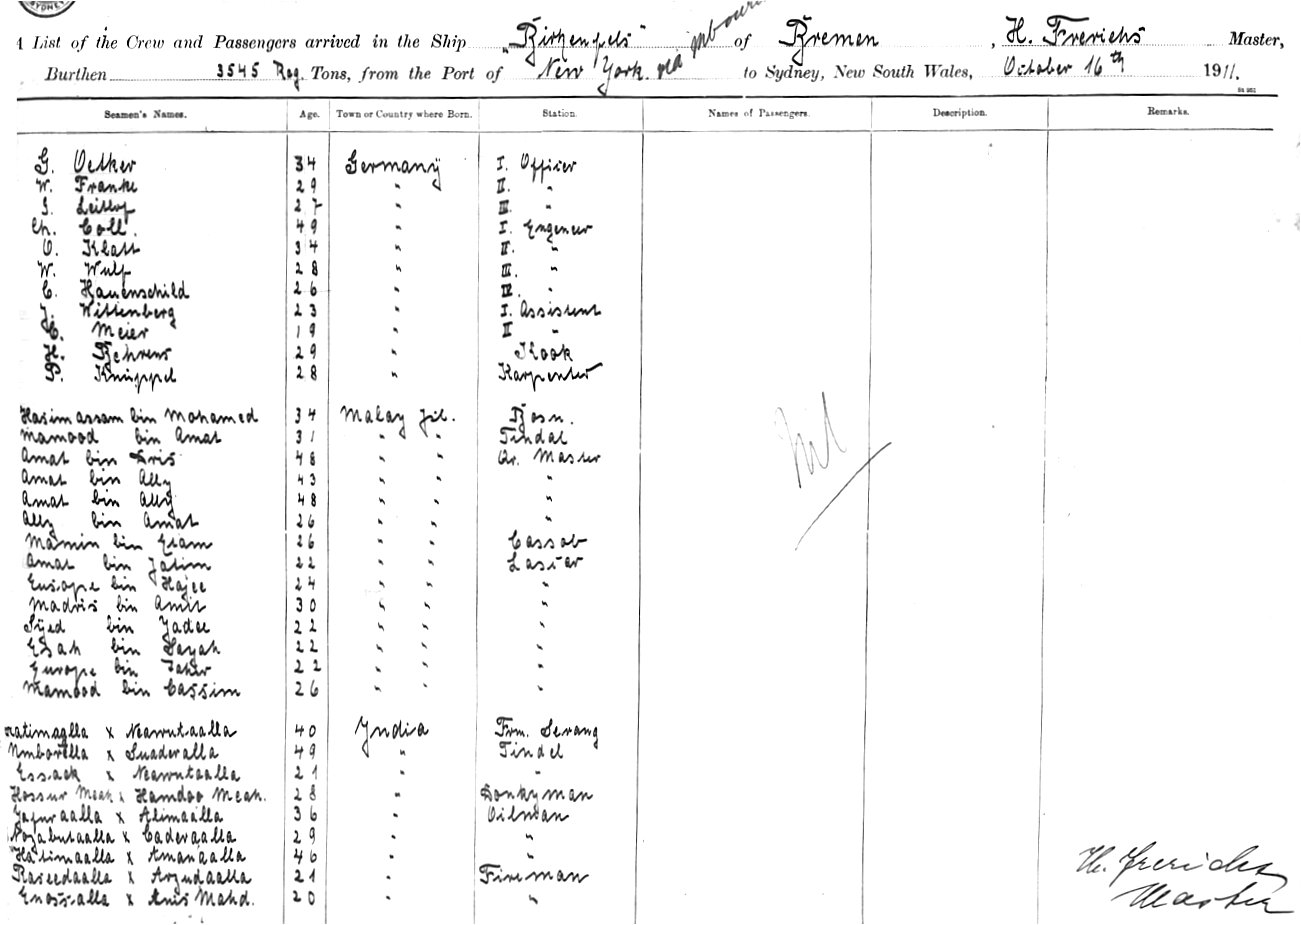 SYDNEY
A List of the Crew and Passengers arrived in the Ship "Birkenfels" of Bremen, H. Frerichs Master,
Burthen 3545 Reg. Tons, from the Port of New York via to Sydney, New South Wales, October 16th 1911.
Seamen's Names. Age. Town or Country where Born. Station. Names of Passengers. Description. Remarks.
G. Oetker 34 Germany I. Officer
W. Franke 29 " II. "
27 " III. "
Ch. Coll. 49 " I. Engeneer
O. Klatt 34 " II. "
W. Wulf 28 " III. "
C. Hauenschild 26 " IV. "
J. Wittenberg 23 " I. Assistent
C. Meier 19 " II "
H. Behrens 29 " Kook
P. Knüppel 28 " Karpenter
Hasimassam bin Mohamed 34 Malay Jsl. Bosn.
Mamood bin Amat 31 " " Tindal
Amat bin Dris 48 " " Qr. Master
Amat bin Ally 43 " " "
Amat bin Ally 48 " " "
Ally bin Amat 26 " " "
Mamin bin Etam 26 " " Cassab
Amat bin Jatim 22 " " Lascar
Eusope bin Hajee 24 " " "
Madris bin Amit 30 " " "
Syed bin Yadee 22 " " "
Esah bin Sayah 22 " " "
Europe bin Taher 22 " " "
Mamood bin Cassim 26 " " "
x Neamutaalla 40 Yndia Frm. Serang
x Suaderalla 49 " Tindel
Essack x Neamutaalla 21 " "
Hossur Meah x Hamdoo Meah. 28 " Donkyman
Gafuraalla x Alimaalla 36 " Oilman
x Caderaalla 29 " "
Hatimaalla x Amanaalla 46 " "
Raseedaalla x Arjudaalla 21 " Fireman
Enossalla x Anis Mahd. 20 " "
Nil
H. Frerichs
Master